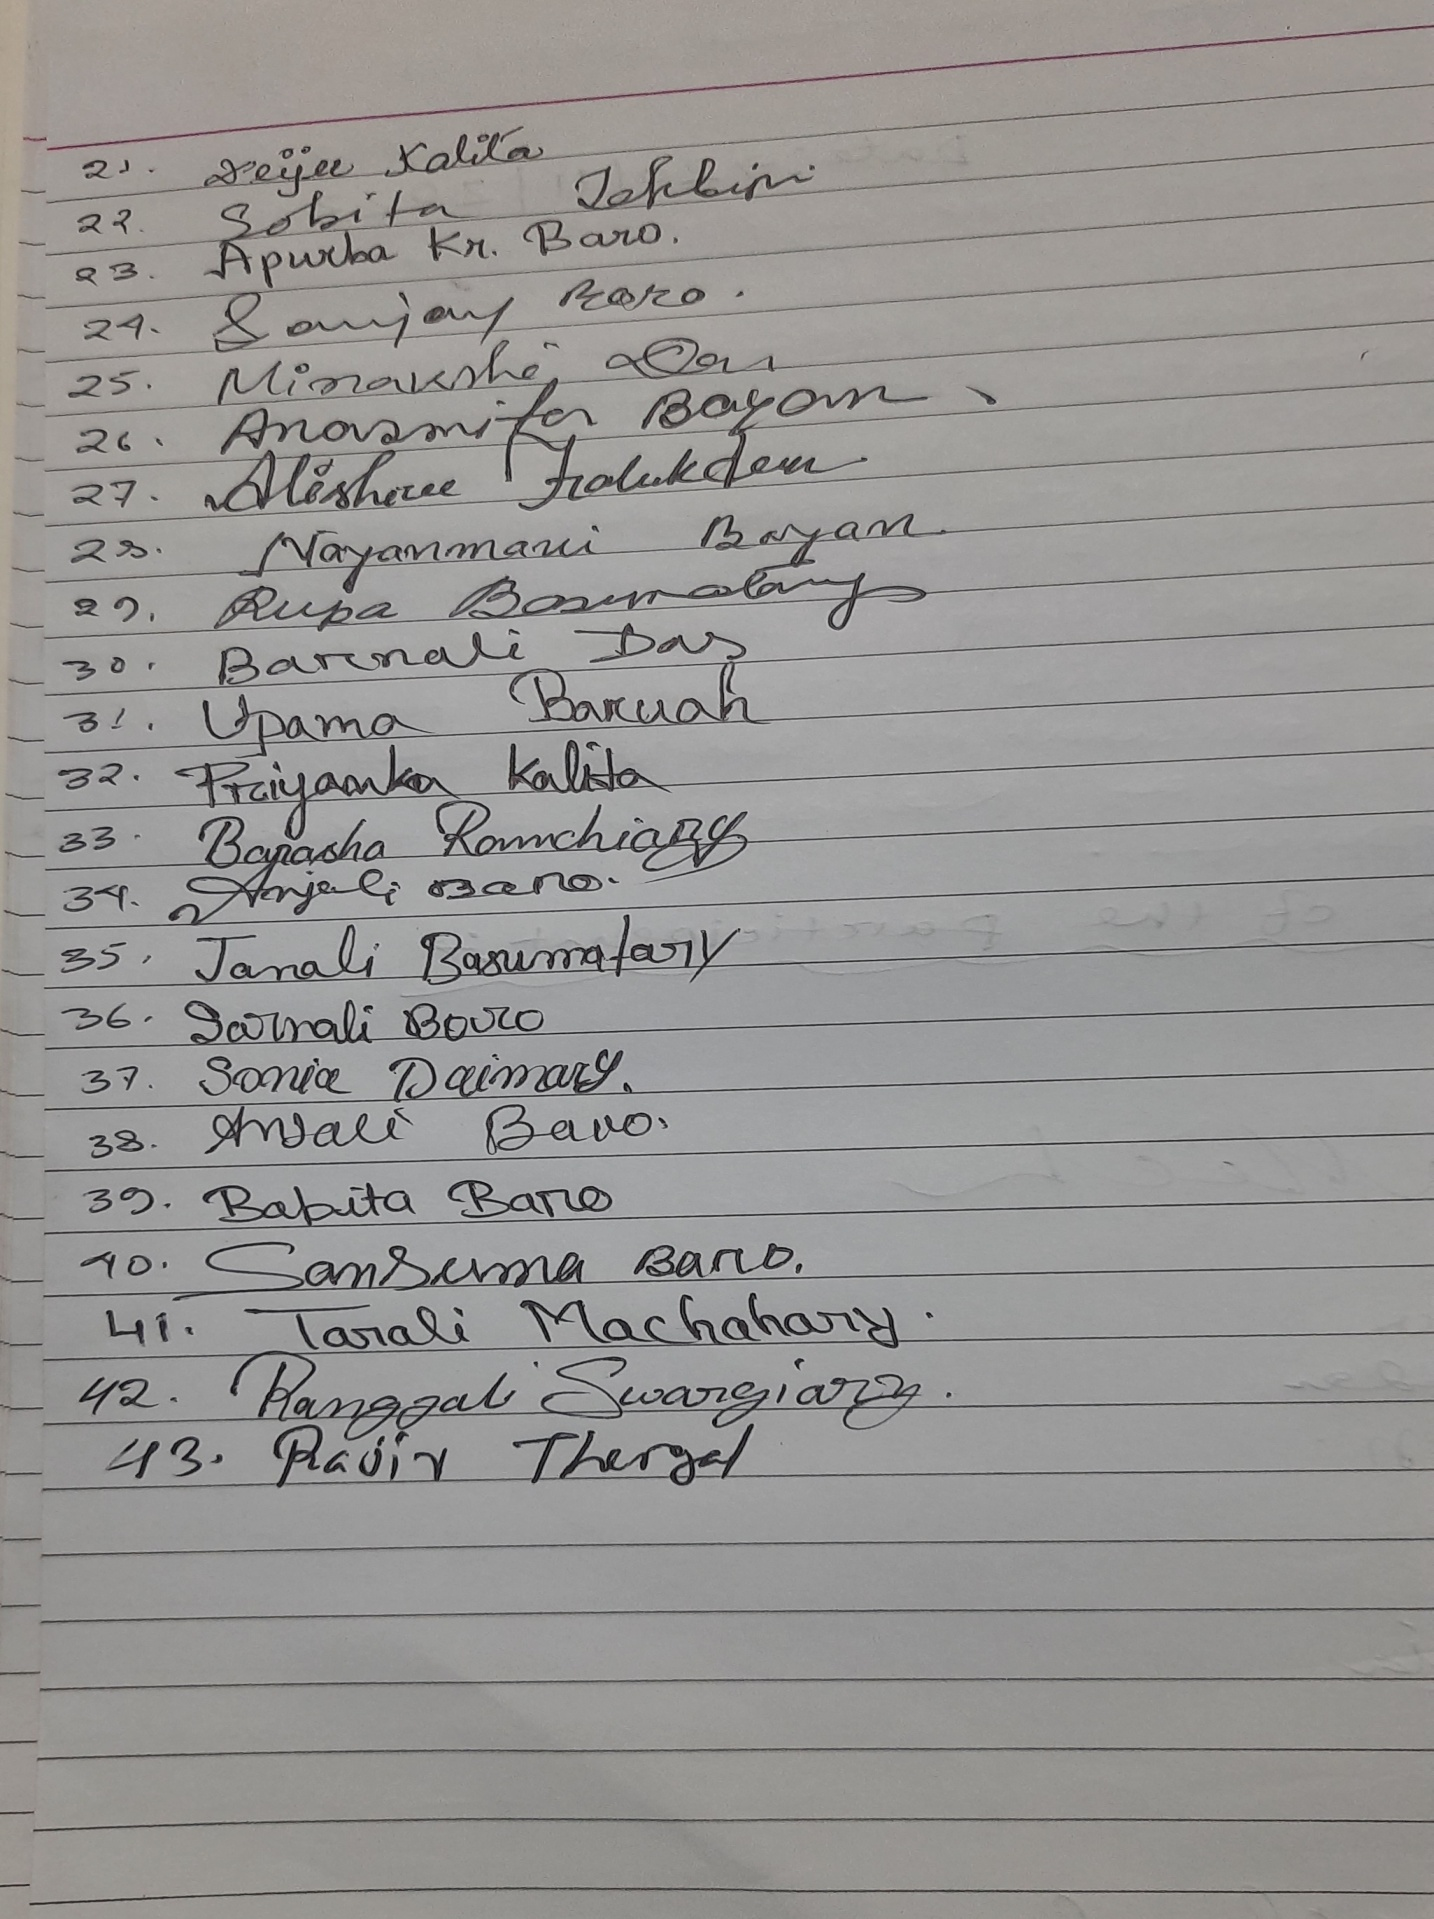 21. Kalita
22. Sobita
23. Apurba Kr. Baro.
24. Sanjay Boro.
25. Minakshi Das
26. Bayan
27. Alishree Talukdar.
28. Nayanmani Bayan
29. Rupa Basumatary
30. Barnali Das
31. Upama Baruah
32. Priyanka Kalita
33. Barasha Ramchiary
34. Anjali Baro.
35. Janali Basumatary
36. Sarnali Boro
37. Sonia Daimary.
38. Anjali Baro.
39. Babita Baro
40. Sansuma Baro.
41. Tarali Machahary.
42. Ranggali Swargiary.
43. Rajiv